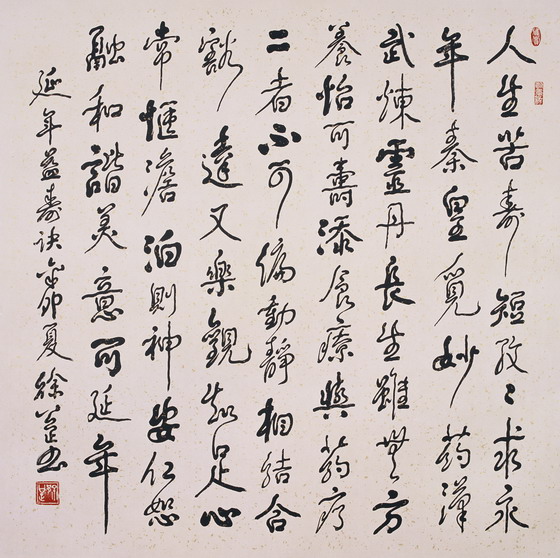 人生苦壽短孜〻求永
年秦皇覓妙药漢
武煉靈丹長生雖無方
養怡可壽添食療與药疗
二者不可偏動靜相結合
豁達又樂觀知足心
常惬澹泊則神安仁恕
融和諧美意可延年
延年益壽诀卯夏徐书